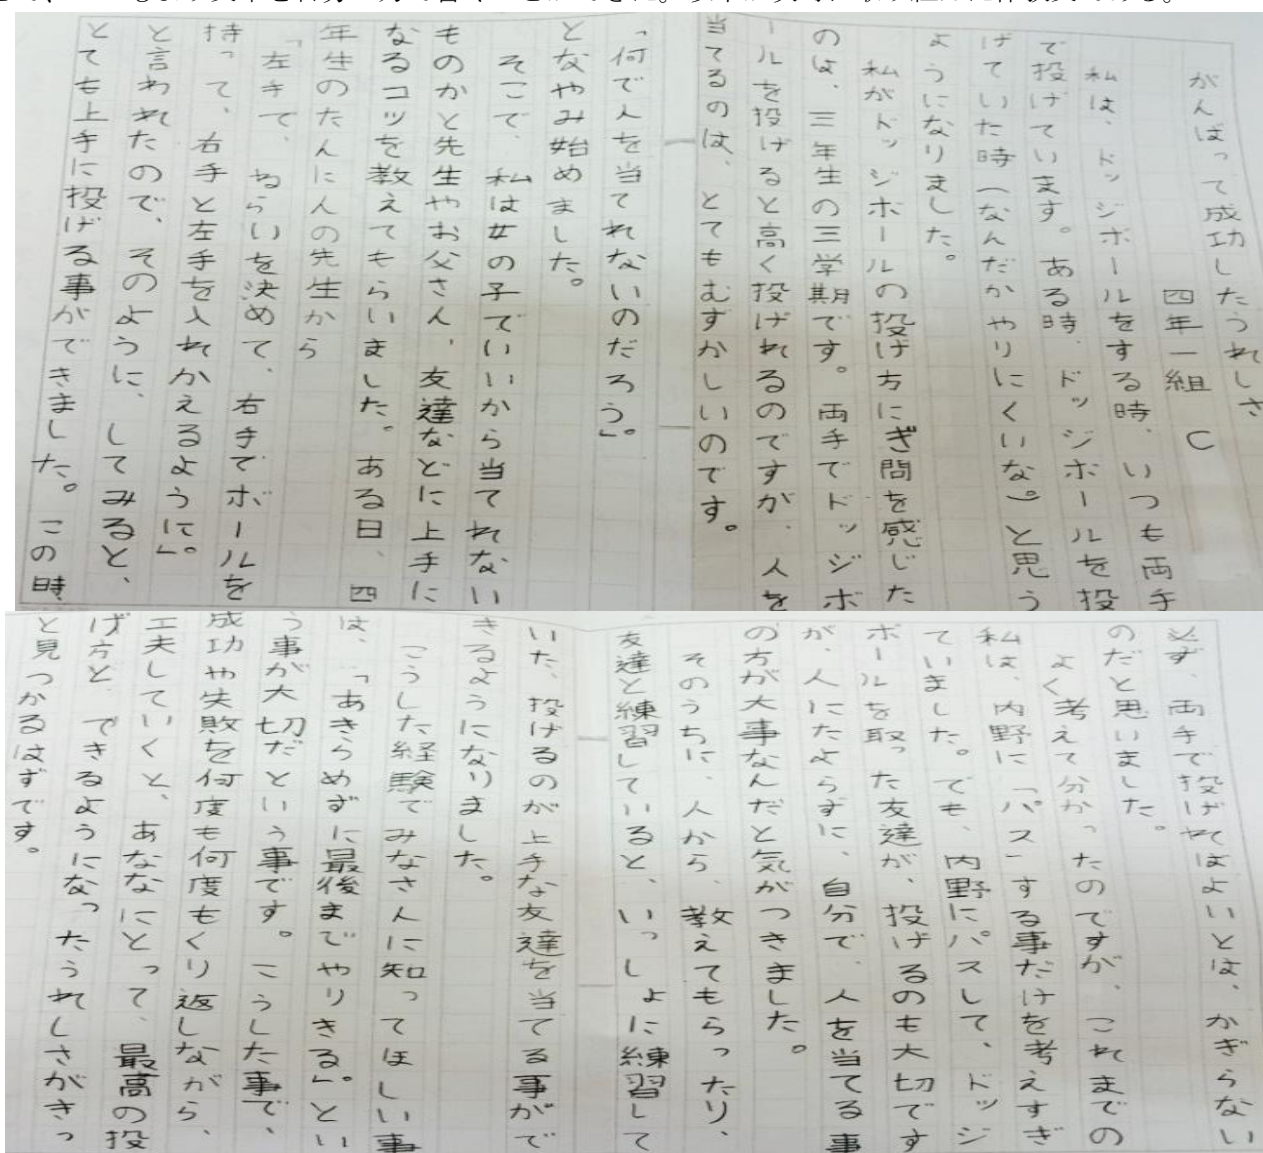 がんばって成功したうれしさ
四年一組 C
私は、ドッジボールをする時、いつも両手
で投げています。ある時、ドッジボールを投
げていた時(なんだかやりにくいな。)と思う
ようになりました。
私がドッジボールの投げ方にぎ問を感じた
のは、三年生の三学期です。両手でドッジボ
ールを投げると高く投げれるのですが、人を
当てるのは、とてもむずかしいのです。
「何で人を当てれないのだろう」。
となやみ始めました。
そこで、私は女の子でいいから当てれない
ものかと先生やお父さん、友達などに上手に
なるコツを教えてもらいました。ある日、四
年生のたんにんの先生から
「左手で、ねらいを決めて、右手でボールを
持って、右手と左手を入れかえるように」。
と言われたので、そのように、してみると、
とても上手に投げる事ができました。この時
必ず、両手で投げればよいとは、かぎらない
のだと思いました。
よく考えて分かったのですが、これまでの
私は、内野に「パス」する事だけを考えすぎ
ていました。でも、内野にパスして、ドッジ
ボールを取った友達が、投げるのも大切です
が、人にたよらずに、自分で、人を当てる事
の方が大事なんだと気がつきました。
そのうちに、人から、教えてもらったり、
友達と練習していると、いっしょに練習して
いた、投げるのが上手な友達を当てる事がで
きるようになりました。
こうした経験でみなさんに知ってほしい事
は、「あきらめずに最後までやりきる」。とい
う事が大切だという事です。こうした事で、
成功や失敗を何度も何度もくり返しながら、
工夫していくと、あななにとって、最高の投
げ方と、できるようになったうれしさがきっ
と見つかるはずです。